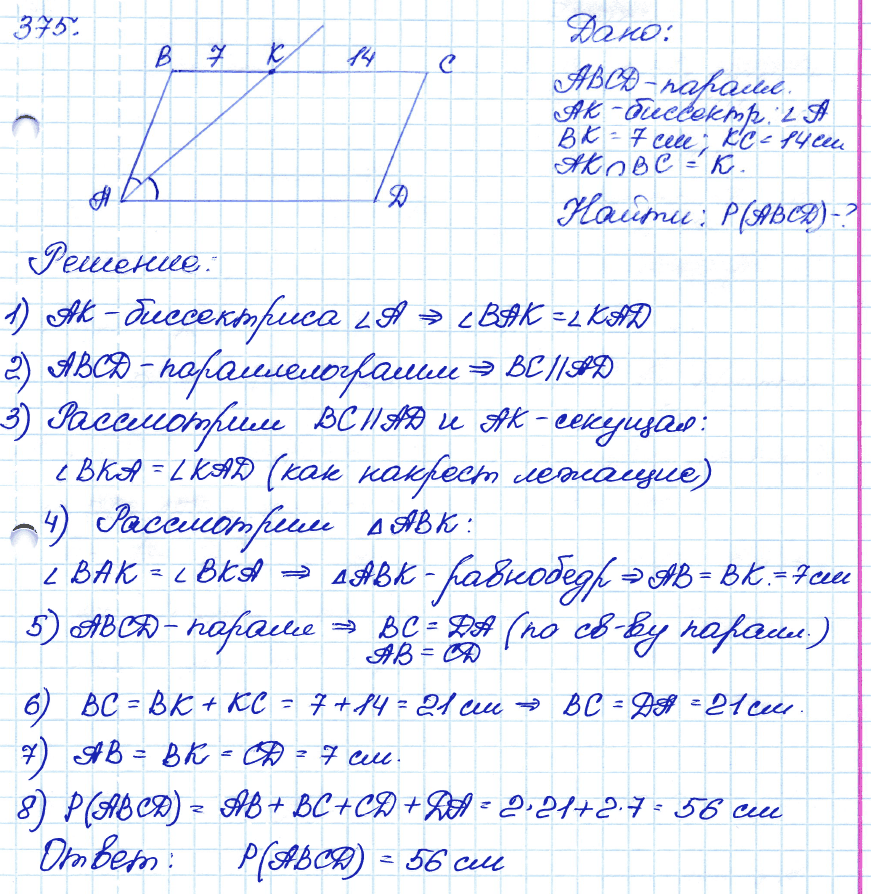 375.
B 7 K 14 C
A D
Дано:
ABCD - паралл.
AK - биссектр. ∠A
BK = 7 см; KC = 14 см
AK ∩ BC = K.
Найти: P(ABCD) - ?
Решение:
1) AK - биссектриса ∠A ⇒ ∠BAK = ∠KAD
2) ABCD - параллелограмм ⇒ BC || AD
3) Рассмотрим BC || AD и AK - секущая:
∠BKA = ∠KAD (как накрест лежащие)
4) Рассмотрим △ABK:
∠BAK = ∠BKA ⇒ △ABK - равнобедр ⇒ AB = BK = 7 см
5) ABCD - паралл ⇒ BC = DA (по св-ву паралл.)
AB = CD
6) BC = BK + KC = 7 + 14 = 21 см ⇒ BC = DA = 21 см.
7) AB = BK = CD = 7 см.
8) P(ABCD) = AB + BC + CD + DA = 2·21 + 2·7 = 56 см
Ответ: P(ABCD) = 56 см